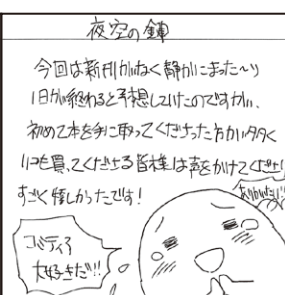 夜空の鐘
今回は新刊がなく静かにまった〜り
1日が終わると予想していたのですが、
初めて本を手に取ってくださった方が多く
いつも買ってくださる皆様は声をかけてくださり
すごく嬉しかったです！
ありがたい!!
コミティア
大好きだ!!